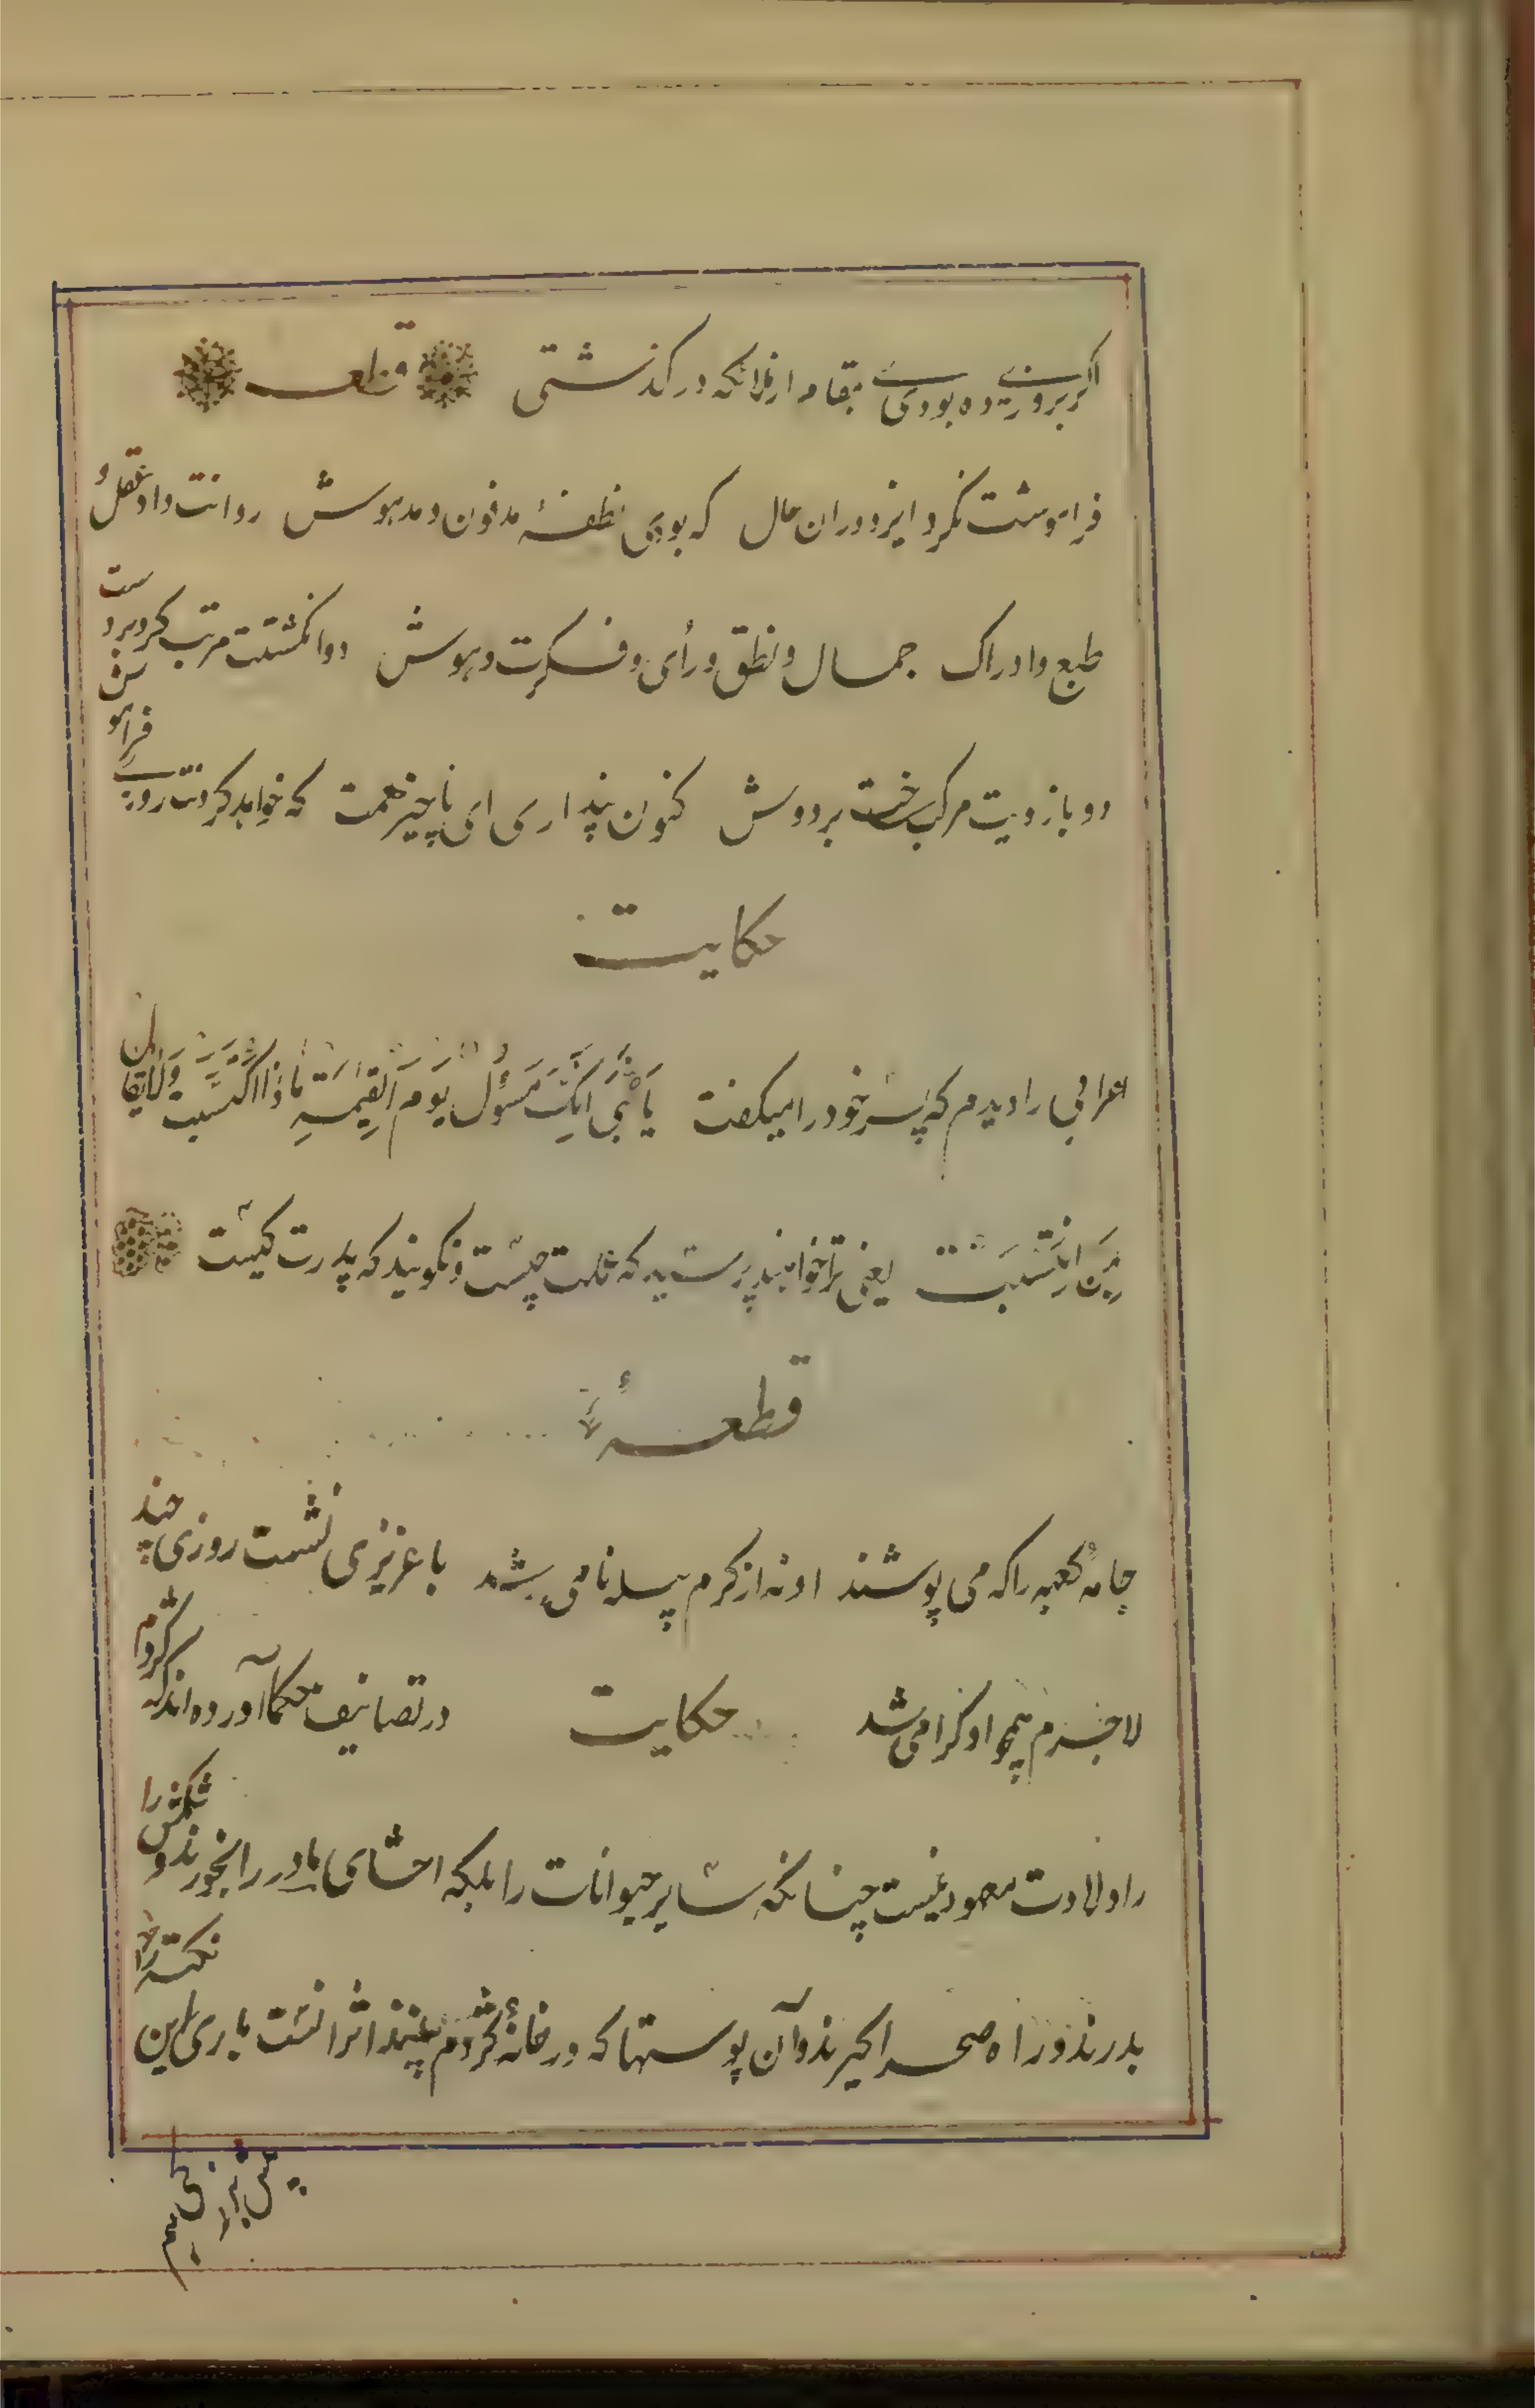 اگر بروزی ده بودی بمقام از ملائکه درگذشتی قطعه
فراموشت نکرد ایزد دران حال که بودی نطفهٔ مدفون و مدهوش روانت داد و عقل و
طبع و ادراک جمال و نطق و رأی و فکرت و هوش دو انگشتت مرتب کرد بر دست
دو بازویت مرکب ساخت بر دوش کنون پنداری ای ناچیز همت که خواهد کردنت روزی فراموش
حکایت
اعرابی را دیدم که پسر خود را میگفت یَا بُنَیَّ اِنَّکَ مَسؤُل یَومَ القِیمَةِ مَاذَا اکتَسَبتَ وَلَا یُقَالُ
بِمَن اِنتَسَبتَ یعنی ترا خواهند پرسید که عملت چیست و نگویند که پدرت کیست
قطعهٔ
جامه کعبه را که می پوشند او نه از کرم پیله نامی شد با عزیزی نشست روزی چند
لاجرم همچو او گرامی شد حکایت در تصانیف حکما آورده اند که کژدم
را ولادت معهود نیست چنانکه سایر حیوانات را بلکه احشای مادر را بخورند و شکمش را
بدرند و راه صحرا گیرند و آن پوستها که در خانهٔ کژدم بینند اثر انست باری این نکته را
پیش بزرگی هم